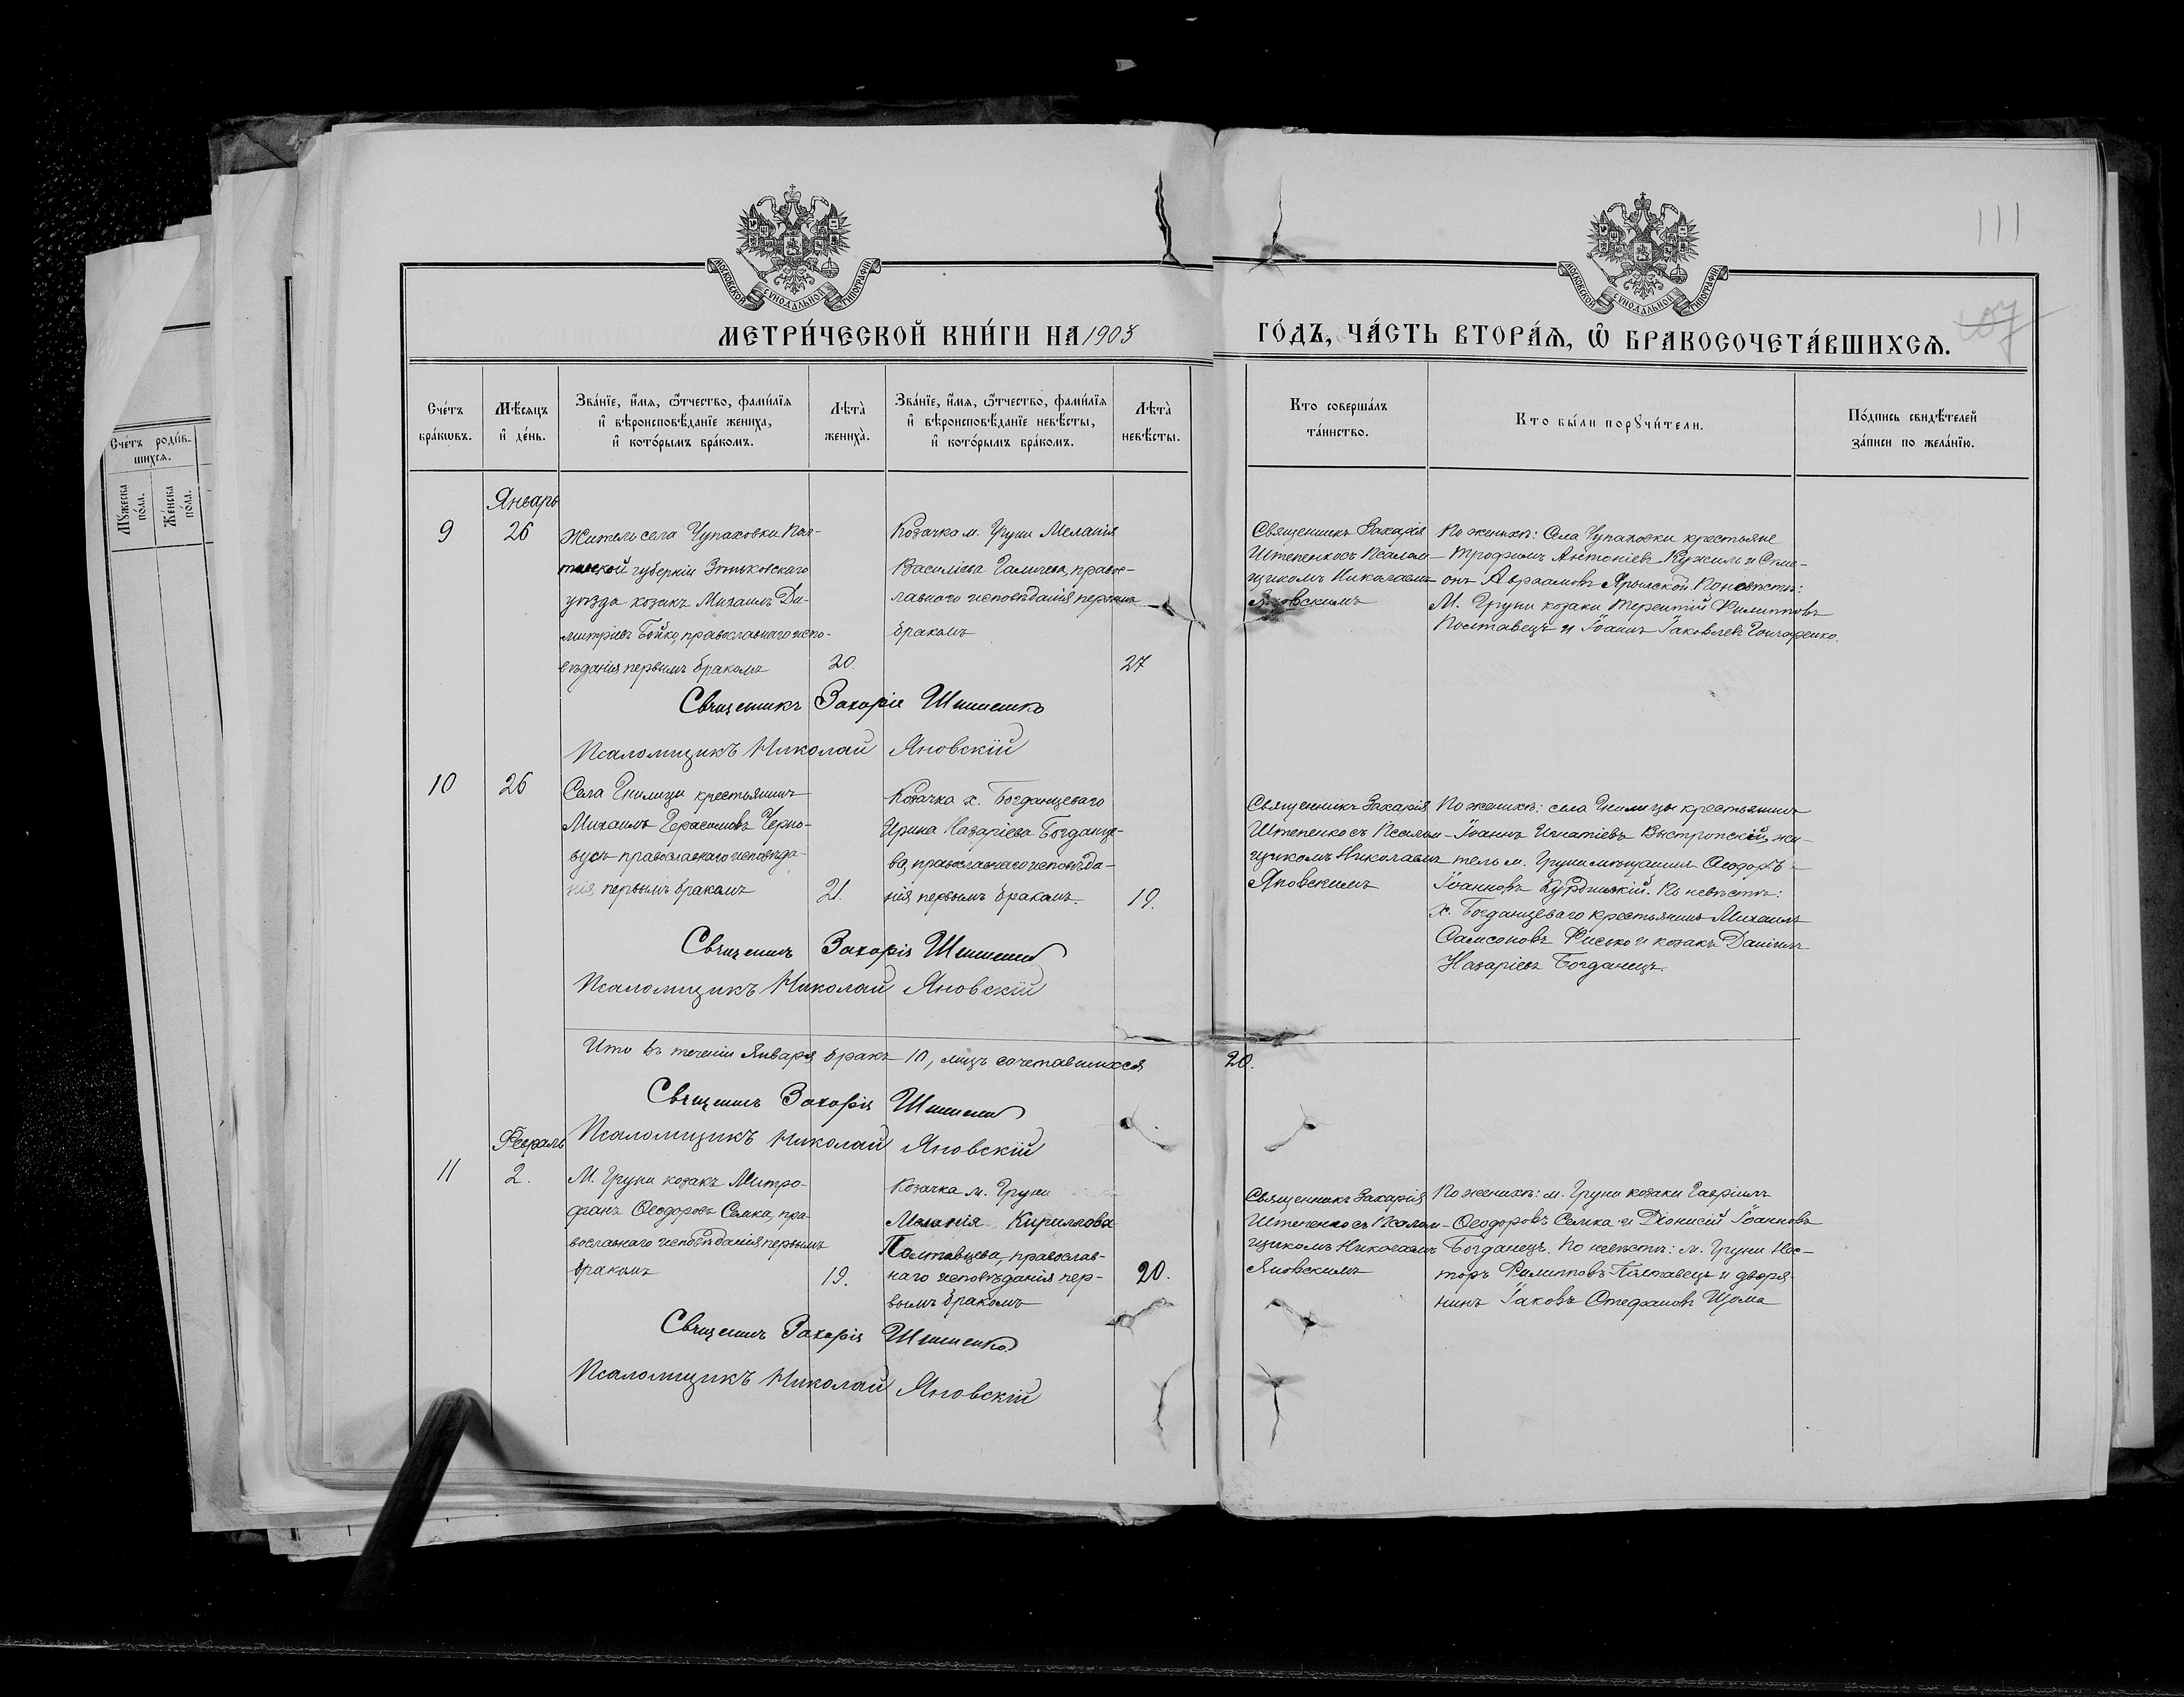 111
107
МОСКОВСКОЙ СУНОДАЛЬНОЙ ТИПОГРАФІИ
МОСКОВСКОЙ СУНОДАЛЬНОЙ ТИПОГРАФІИ
МЕТРИ́ЧЕСКОЙ КНИ́ГИ НА 1903
ГО́ДЪ, ЧА́СТЬ ВТОРА́Ѧ, Ѽ БРАКОСОЧЕТА́ВШИХСѦ.
Счетъ родив-
шихсѧ.
Мꙋжеска
пола.
Женска
пола.
Сче́тъ
бра́кѡвъ.
Мѣсѧцъ
и де́нь.
Зва́нїе, и́мѧ, ѻ҆тчество, фами́лїѧ
и вѣроисповѣ́данїе жениха̀,
и кото́рымъ бра́комъ.
Лѣта̀
жениха̀.
Зва́нїе, и́мѧ, ѻ҆тчество, фами́лїѧ
и вѣроисповѣ́данїе невѣ́сты,
и кото́рымъ бра́комъ.
Лѣта̀
невѣ́сты.
Кто соверша́лъ
та́инство.
Кто бы́ли порꙋчи́тели.
По́дпись свидѣ́телей
за́писи по жела́нїю.
Январь
9
26
Житель села Чупаховки Пол-
тавской губерніи Зѣньковскаго
уѣзда козакъ Михаилъ Ди-
митріевъ Бойко, православнаго испо-
вѣданія первымъ бракомъ
20.
Козачка м. Груни Меланія
Василіева Галичева, правос-
лавнаго исповѣданія первымъ
бракомъ
27
Священникъ Захарія
Штепенко съ Псалом-
щикомъ Николаемъ
Яновскимъ
По женихѣ: Села Чупаховки крестьяне
Трофимъ Антоніевъ Кужиль и Симе-
онъ Авраамовъ Ярысской. По невѣстѣ:
М. Груни козаки Терентій Филипповъ
Полтавецъ и Іоаннъ Іаковлевъ Гончаренко.
Священникъ Захарія Штепенко
Псаломщикъ Николай Яновскій
10
26
Села Гнилицы крестьянинъ
Михаилъ Герасимовъ Черно-
вусъ православнаго исповѣда-
нія первымъ бракомъ
21.
Козачка х. Богданцеваго
Ирина Назаріева Богданце-
ва, православнаго исповѣда-
нія первымъ бракомъ.
19.
Священникъ Захарія
Штепенко съ Псалом-
щикомъ Николаемъ
Яновскимъ
По женихѣ: села Гнилицы крестьянинъ
Іоаннъ Игнатіевъ Выстропскій, жи-
тель м. Груни мѣщанинъ Ѳеодоръ
Іоанновъ. По невѣстѣ:
х. Богданцеваго крестьянинъ Михаилъ
Самсоновъ Фисько и козакъ Даніилъ
Назаріевъ Богданецъ.
Священникъ Захарія Штепенко
Псаломщикъ Николай Яновскій
Итого въ теченіи Января бракъ 10, лицъ сочетавшихся 20.
Священникъ Захарія Штепенко
Псаломщикъ Николай Яновскій
Февраль
11
2.
М. Груни козакъ Митро-
фанъ Ѳеодоровъ Семка, пра-
вославнаго исповѣданія первымъ
бракомъ
19.
Козачка м. Груни
Меланія Кириллова
Полтавцева, православ-
наго исповѣданія пер-
вымъ бракомъ
20.
Священникъ Захарія
Штепенко съ Псалом-
щикомъ Николаемъ
Яновскимъ
По женихѣ: м. Груни козаки Гавріилъ
Ѳеодоровъ Семка и Діонисій Іоанновъ
Богданецъ. По невѣстѣ: м. Груни Нес-
торъ Филипповъ Полтавецъ и дворя-
нинъ Іаковъ Стефановъ Щома
Священникъ Захарія Штепенко
Псаломщикъ Николай Яновскій